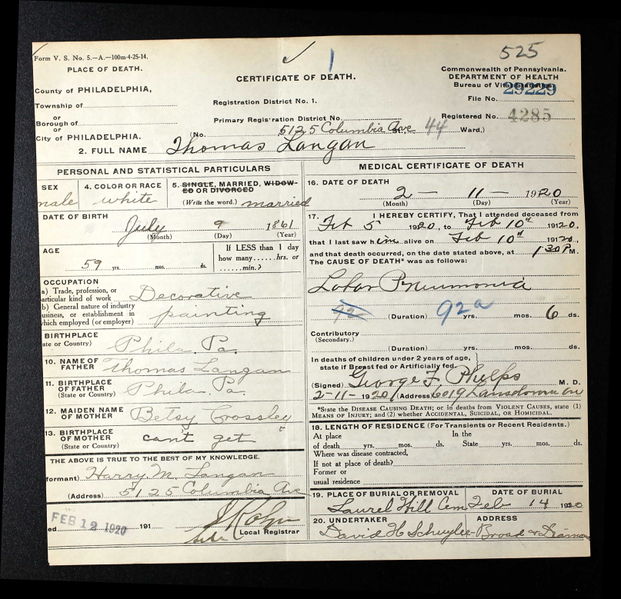 Form V. S. No. 5.—A.—100m-4-25-14.
PLACE OF DEATH.
County of PHILADELPHIA,
Township of
or
Borough of
or
City of PHILADELPHIA. (No. 5125 Columbia Ave 44 Ward.)
CERTIFICATE OF DEATH.
Registration District No. 1.
Primary Registration District No.
525
Commonwealth of Pennsylvania.
DEPARTMENT OF HEALTH
Bureau of Vital Statistics.
File No. 29229
Registered No. 4285
2. FULL NAME Thomas Langan
PERSONAL AND STATISTICAL PARTICULARS
SEX male
4. COLOR OR RACE white
5. SINGLE, MARRIED, WIDOWED OR DIVORCED
(Write the word.) married
DATE OF BIRTH
July 9 1861
(Month) (Day) (Year)
AGE
59 yrs. mos. ds.
If LESS than 1 day
how many......hrs. or
......min.?
OCCUPATION
a) Trade, profession, or
particular kind of work Decorative
b) General nature of industry
business, or establishment in
which employed (or employer) painting
BIRTHPLACE
State or Country) Phila. Pa.
10. NAME OF
FATHER Thomas Langan
11. BIRTHPLACE
OF FATHER
(State or Country) Phila. Pa.
12. MAIDEN NAME
OF MOTHER Betsy Crossley
13. BIRTHPLACE
OF MOTHER
(State or Country) cant get
THE ABOVE IS TRUE TO THE BEST OF MY KNOWLEDGE.
formant) Harry M. Langan
(Address) 5125 Columbia Ave
ed FEB 12 1920 191
Local Registrar
MEDICAL CERTIFICATE OF DEATH
16. DATE OF DEATH
2 — 11 — 1920
(Month) (Day) (Year)
17. I HEREBY CERTIFY, That I attended deceased from
Feb 5 1920, to Feb 10th 1920.
that I last saw him alive on Feb 10th 1920.
and that death occurred, on the date stated above, at 1 30 P M.
The CAUSE OF DEATH* was as follows:
Lobar Pneumonia
92a
(Duration) yrs. mos. 6 ds.
Contributory
(Secondary)
(Duration) yrs. mos. ds.
In deaths of children under 2 years of age,
state if Breast fed or Artificially fed
(Signed) George F. Phelps M. D.
2-11-1920 (Address) 6019 Lansdowne Av
*State the DISEASE CAUSING DEATH; or in deaths from VIOLENT CAUSES, state (1)
MEANS OF INJURY; and (2) whether ACCIDENTAL, SUICIDAL, OR HOMICIDAL.
18. LENGTH OF RESIDENCE (For Transients or Recent Residents.)
At place In the
of death yrs. mos. ds. State yrs. mos. ds.
Where was disease contracted,
If not at place of death?
Former or
usual residence
19. PLACE OF BURIAL OR REMOVAL DATE OF BURIAL
Laurel Hill Cem Feb 14 1920
20. UNDERTAKER ADDRESS
David H Schuyler Broad &